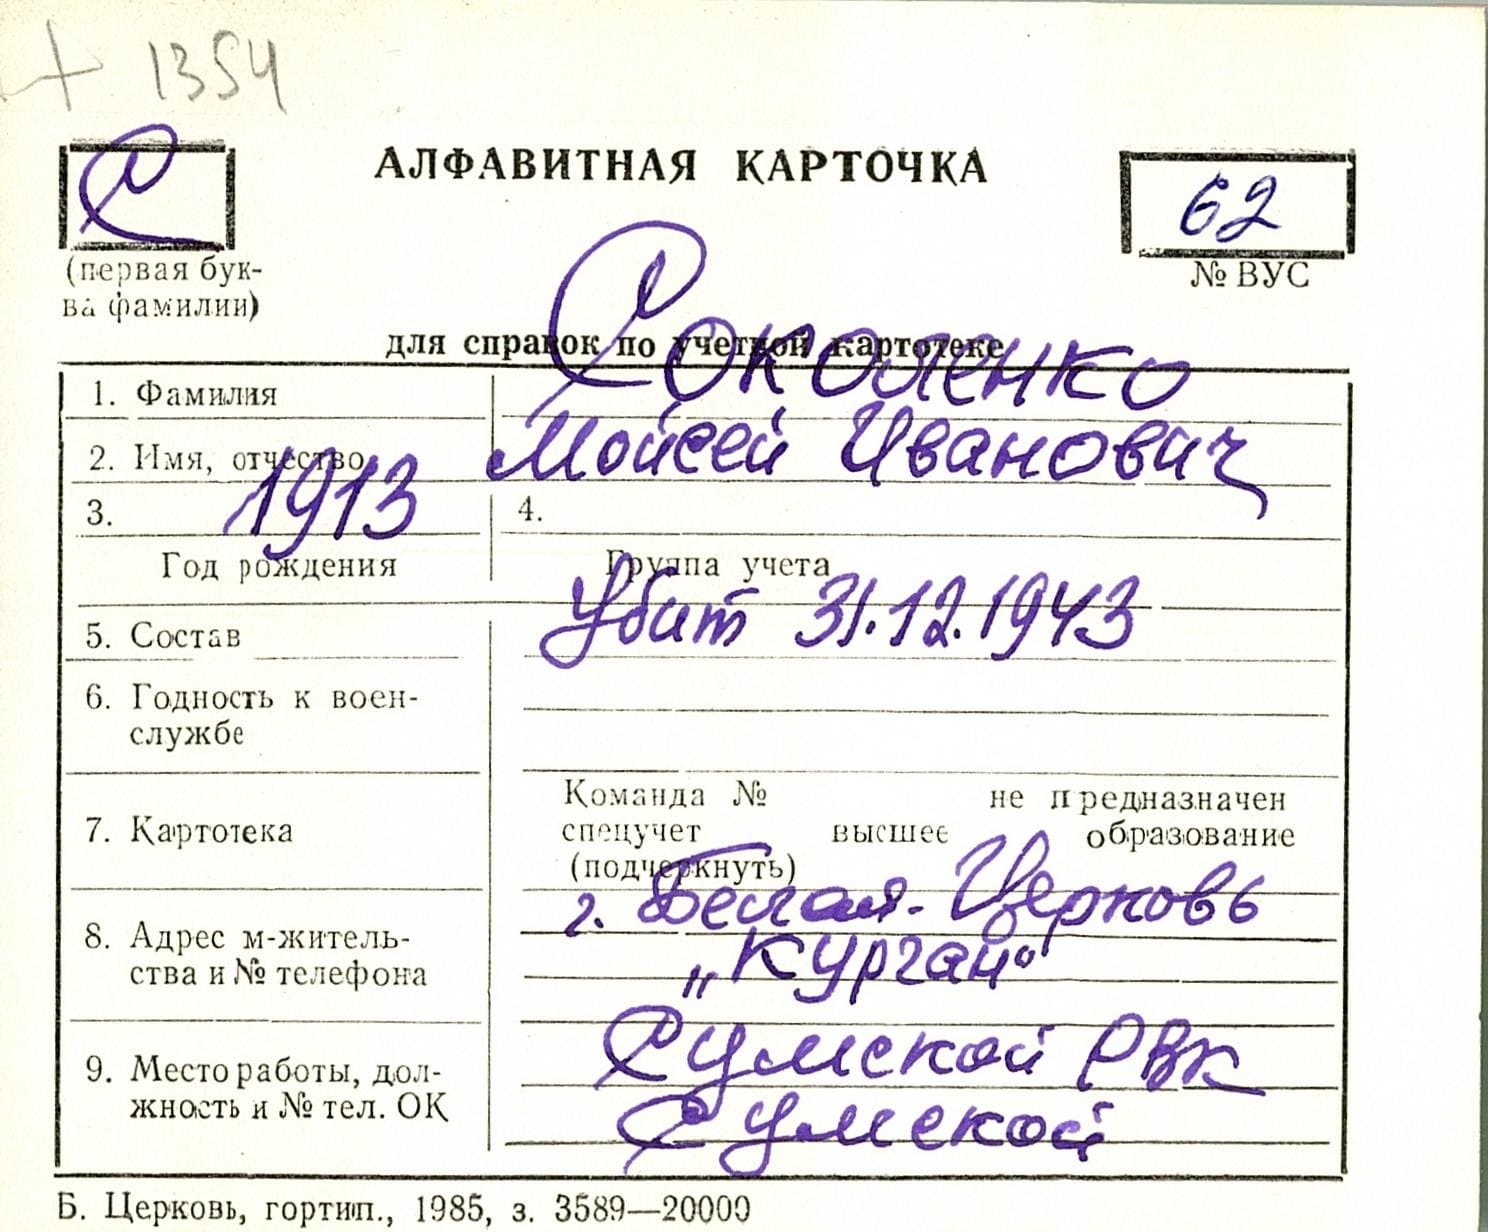 + 1354
С
АЛФАВИТНАЯ КАРТОЧКА
62
(первая бук-
ва фамилии)
№ ВУС
для справок по учетной картотеке
1. Фамилия Соколенко
2. Имя, отчество Мойсей Иванович
3. 1913 4.
Год рождения Группа учета
Убит 31.12.1943
5. Состав
6. Годность к воен-
службе
7. Картотека
Команда № не предназначен
спецучет высшее образование
(подчеркнуть)
8. Адрес м-житель-
ства и № телефона
г. Белая-Церковь
"Курган"
9. Место работы, дол-
жность и № тел. ОК
Сумской РВК
Сумской
Б. Церковь, гортип., 1985, з. 3589—20000